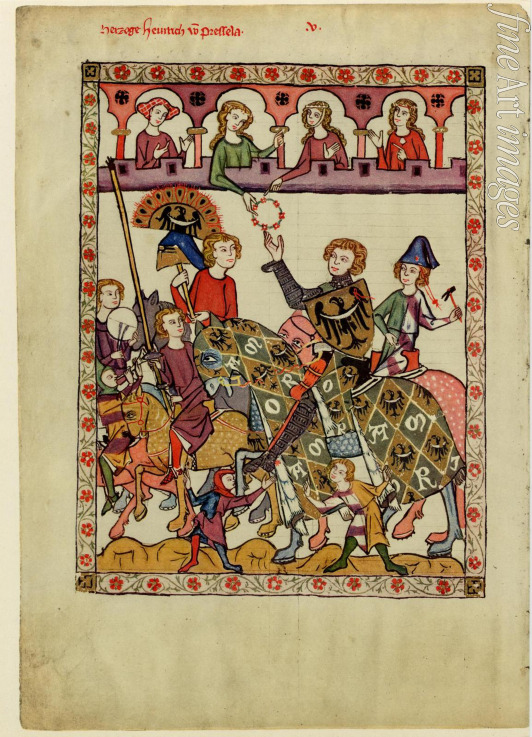 herzoge heinrich võ Pressela. .v.
A M
O R
O R S I
A S A
A S R
fine art images